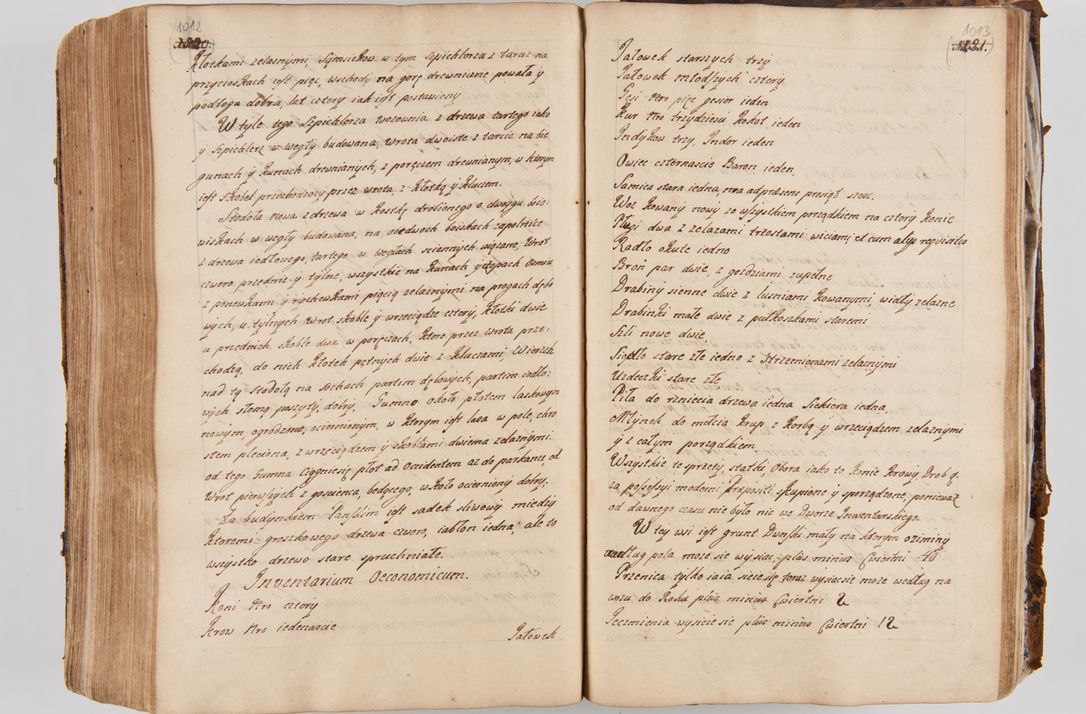 1012
1020.
Klotkami zelaznymi, Sąmsiekow w tym Szpichlerzu z tarcic na
przycieskach jest pięc, wschody na gorę drewniane powała y
podłoga dobra, lat cztery iak jest postawiony
W tyle tego Szpichlerza wozownia z drzewa tartego iako
y Szpichlerz w węgły budowana, wrota dwoiste z tarcic na bie
gunach y kunach drewnianych, z poręczem drewnianym, w ktorym
jest skobel przechodzący przez wrota, z Klotką y kluczem.
Stodoła nowa z drzewa w kostkę drobionego o dwoygu boio-
wiskach w węgły budowana, na obodwoch boiskach zapolnice
z drzewa iodłowego, tartego w węgłach sciennych wiązane, Wrot
czworo przednie y tylne, wszystkie na kunach y czopach osmiu
z panewkami y rychewkami pięcią zelaznymi na progach dębo
wych, u tylnych wrot skoble y wrzeciądze cztery, Klotki dwie
u przednich skoble dwa w poręczach, ktore przez wrota prze-
chodzą, do nich klotek pętnych dwie z kluczami. Wierzch
nad tą stodołą na sochach partim dębowych, partim iodło-
wych słomą poszyty, dobry, Gumno około płotem laskowym
nowym, ogrodzone, ociernionym, w ktorym jest lasa w pole, chro
stem pleciona, z wrzeciądzem y skoblami dwiema zelaznymi.
od tego Gumna ciągnie się płot ad Occidentem az do parkanu, od
Wrot pierwszych z goscienca, będącego, w koło ocierniony dobry.
Za budynkiem Panskim jest sadek sliwowy miedzy
ktoremi groszkowego drzewa czworo, iabłoń iedna, ale to
wszystko drzewo stare spruchniałe.
Inventarium Oeconomicum.
Koni Nro cztery
Krow Nro iedenascie
Jałowek
1013
1021.
Jałowek starszych trzy
Jałowek młodszych cztery
Gęsi Nro pięc gesior ieden
Kur Nro trzydziesci Kokot ieden
Indykow trzy, Indor ieden
Owiec czternascie Baron ieden
Samica stara iedna, ad praesens prosiąt szesc.
Woz kowany nowy ze wszystkiem porządkiem na cztery konie
Pługi dwa z zelazami trzosłami wiciami et cum aliis requisitis
Radło okute iedno
Bron par dwie, z gozdziami zupełne
Drabiny sienne dwie z lusniami kowanymi, widły zelazne
Drabinki małe dwie z pułkoszkami staremi
Szli nowe dwie,
Siodło stare złe iedno z strzemionami zelaznymi
Uzdeczki stare złe
Piła do rznięcia drzewa iedna Siekiera iedna,
Młynek do mełcia krup z korbą y wrzeciądzem zelaznymi
y z całym porządkiem.
Wszystkie te sprzęty, statki, obora iako to konie krowy, Drob &.
są possessyi moderni Praepositi, skupione y sporządzone, poniewaz
od dawnego czasu nie było nic we Dworze Inwentarskiego.
W tey wsi jest grunt Dworski mały na ktorym oziminy
według pola moze się wysiac, plus minus Cwiertni 40
Pszenica tylko iara sieie się teraz wysiacsie moze według na
wozu do Roku plus minus Cwiertni 2
Jęczmienia wysieie się plus minus Cwiertni 12